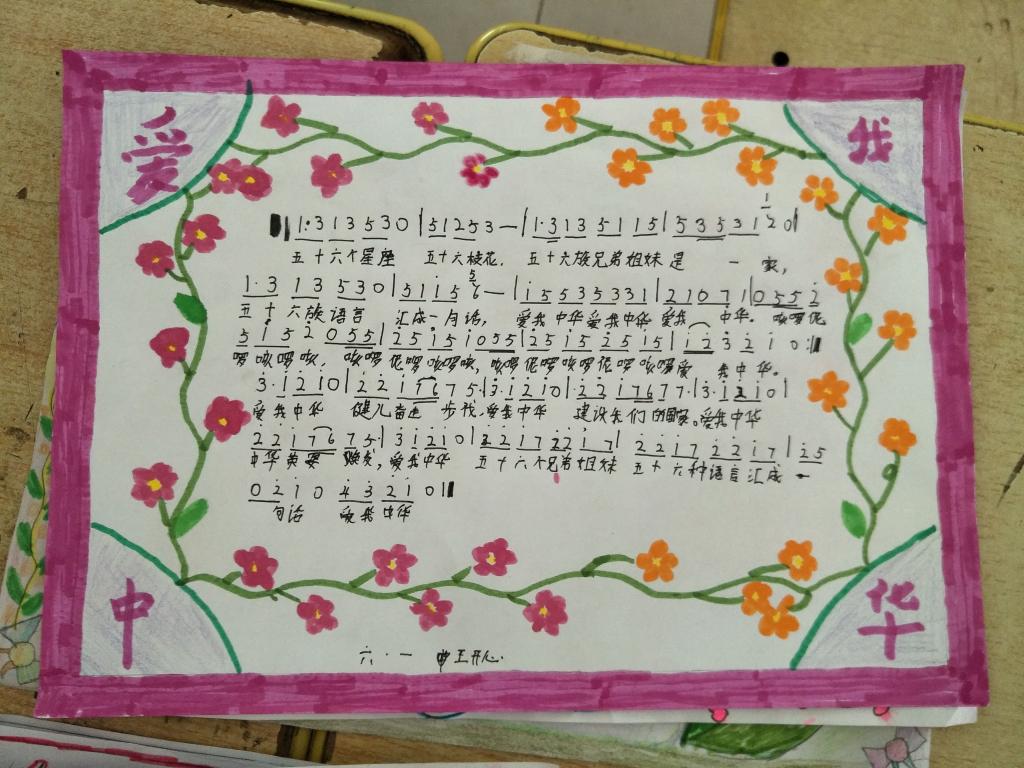 爱 我
1·3 1 3 5 3 0 | 5 1 2 5 3 — | 1·3 1 3 5 1 1 5 | 5 3 5 3 1 2 0 |
五十六个星座 五十六枝花. 五十六族兄弟姐妹是 一 家,
1·3 1 3 5 3 0 | 5 1 i 5 6 — | i 5 5 3 5 3 3 1 | 2 1 0 7 1 | 0 5 5 2
五十六族语言 汇成一句话, 爱我中华爱我中华 爱我 中华. 咳啰伲
5 i 5 2 0 5 5 | 2 5 i 5 i 0 5 5 | 2 5 i 5 2 5 i 5 | i 2 3 2 i 0 :|
啰咳啰咳, 咳啰伲啰咳啰咳, 咳啰伲啰咳啰伲啰咳啰爱 我中华.
3·i 2 i 0 | 2 2 i 7 6 7 5· | 3·i 2 i 0 | 2 2 i 7 6 7 7 | 3·i 2 i 0 |
爱我中华 健儿奋进 步伐.爱我中华 建设我们的国家.爱我中华
2 2 i 7 6 7 5· | 3 i 2 i 0 | 2 2 i 7 2 2 i 7 | 2 2 i 7 2 2 i 7 | 2 5
中华英 焕发,爱我中华 五十六个兄弟姐妹 五十六种语言汇成 一
0 2 i 0 4 3 2 i 0 ‖
句话 爱我中华
中 华
六·一 王开心